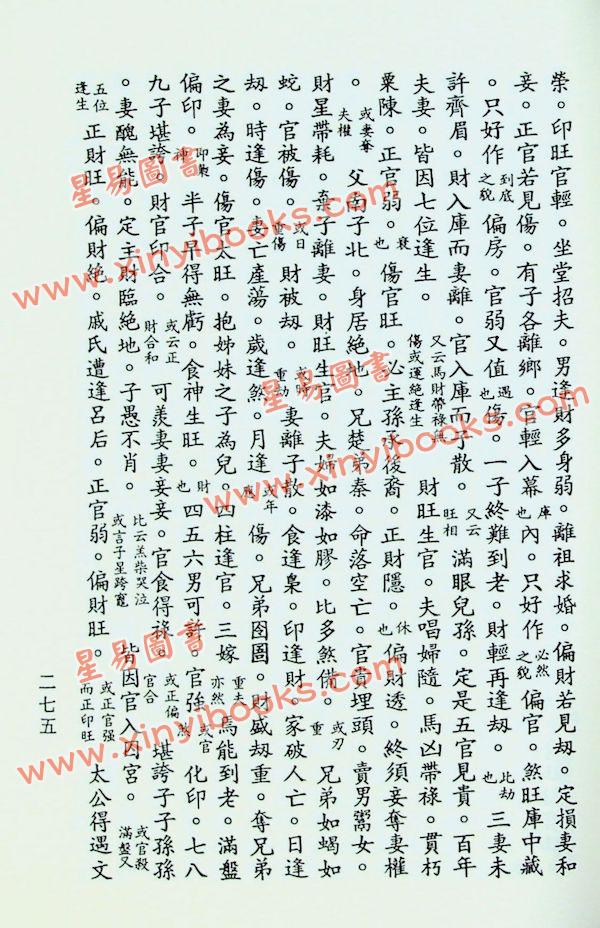 榮。印旺官輕。坐堂招夫。男逢財多身弱。離祖求婚。偏財若見刼。定損妻和
妾。正官若見傷。有子各離鄉。官輕入幕庫也內。只好作必然之貌偏官。煞旺庫中藏
。只好作到底之貌偏房。官弱又值遇也傷。一子終難到老。財輕再逢刼。此劫也三妻未
許齊眉。財入庫而妻離。官入庫而子散。又云旺相滿眼兒孫。定是五官見貴。百年
夫妻。皆因七位逢生。又云馬財帶祿無傷或運絕逢生財旺生官。夫唱婦隨。馬凶帶祿。貫朽
粟陳。正官弱。衰也傷官旺。必主孫承後裔。正財隱。休也偏財透。終須妾奪妻權
。或妻奪夫權父南子北。身居絕地。兄楚弟秦。命落空亡。官貴埋頭。賣男鬻女。
財星帶耗。棄子離妻。財旺生官。夫婦如漆如膠。比多煞備。或刃重兄弟如蝎如
蛇。官被傷。或日重傷財被刼。或時重劫妻離子散。食逢梟。印逢財。家破人亡。日逢
刼。時逢傷。妻亡產蕩。歲逢煞。月逢或年應傷。兄弟囹圄。財盛刼重。奪兄弟
之妻為妾。傷官太旺。抱姊妹之子為兒。四柱逢官。三嫁重夫亦然焉能到老。滿盤
偏印。神半子早得無虧。食神生旺。財也四五六男可許。官強或官煞化印。七八
九子堪誇。財官印合。或云正財合和可羨妻妻妾妾。官食得祿。或正偏官合堪誇子子孫孫
。妻醜無能。定主財臨絕地。子愚不肖。比云羔柴哭泣或言子星跨竈皆因官入囚宮。或官殺滿盤又
五位逢生正財旺。偏財絕。戚氏遭逢呂后。正官弱。偏財旺。或正官强而正印旺太公得遇文
二七五
星易圖書
www.xinyibooks.com
星易圖書
www.xinyibooks.com
星易圖書
www.xinyibooks.com